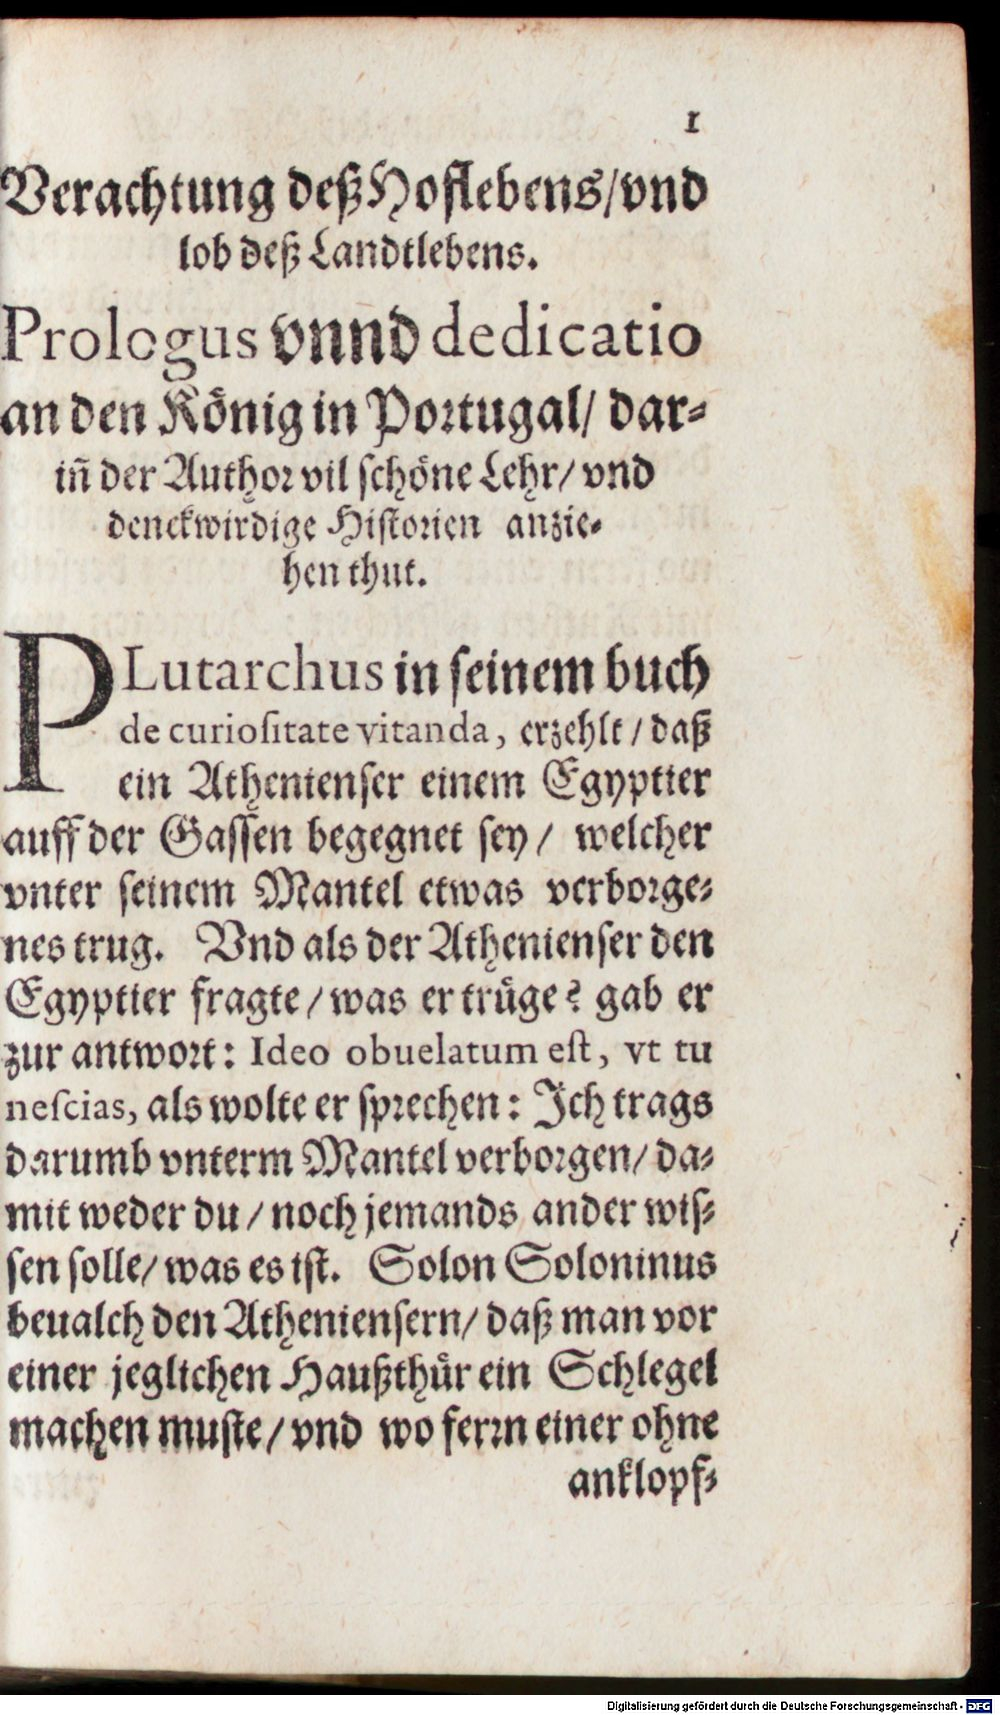 1
Verachtung deß Hoflebens/vnd
lob deß Landtlebens.
Prologus vnnd dedicatio
an den König in Portugal/ dar-
iñ der Author vil schöne Lehr/ vnd
denckwirdige Historien anzie-
hen thut.
PLutarchus in seinem buch
de curiositate vitanda, erzehlt / daß
ein Athenienser einem Egyptier
auff der Gassen begegnet sey / welcher
vnter seinem Mantel etwas verborge-
nes trug. Vnd als der Athenienser den
Egyptier fragte / was er trüge? gab er
zur antwort: Ideo obuelatum est, vt tu
nescias, als wolte er sprechen: Ich trags
darumb vnterm Mantel verborgen/ da-
mit weder du / noch jemands ander wis-
sen solle/ was es ist. Solon Soloninus
beualch den Atheniensern/ daß man vor
einer jeglichen Haußthür ein Schlegel
machen muste/ vnd wo ferrn einer ohne
anklopf-
Digitalisierung gefördert durch die Deutsche Forschungsgemeinschaft - DFG